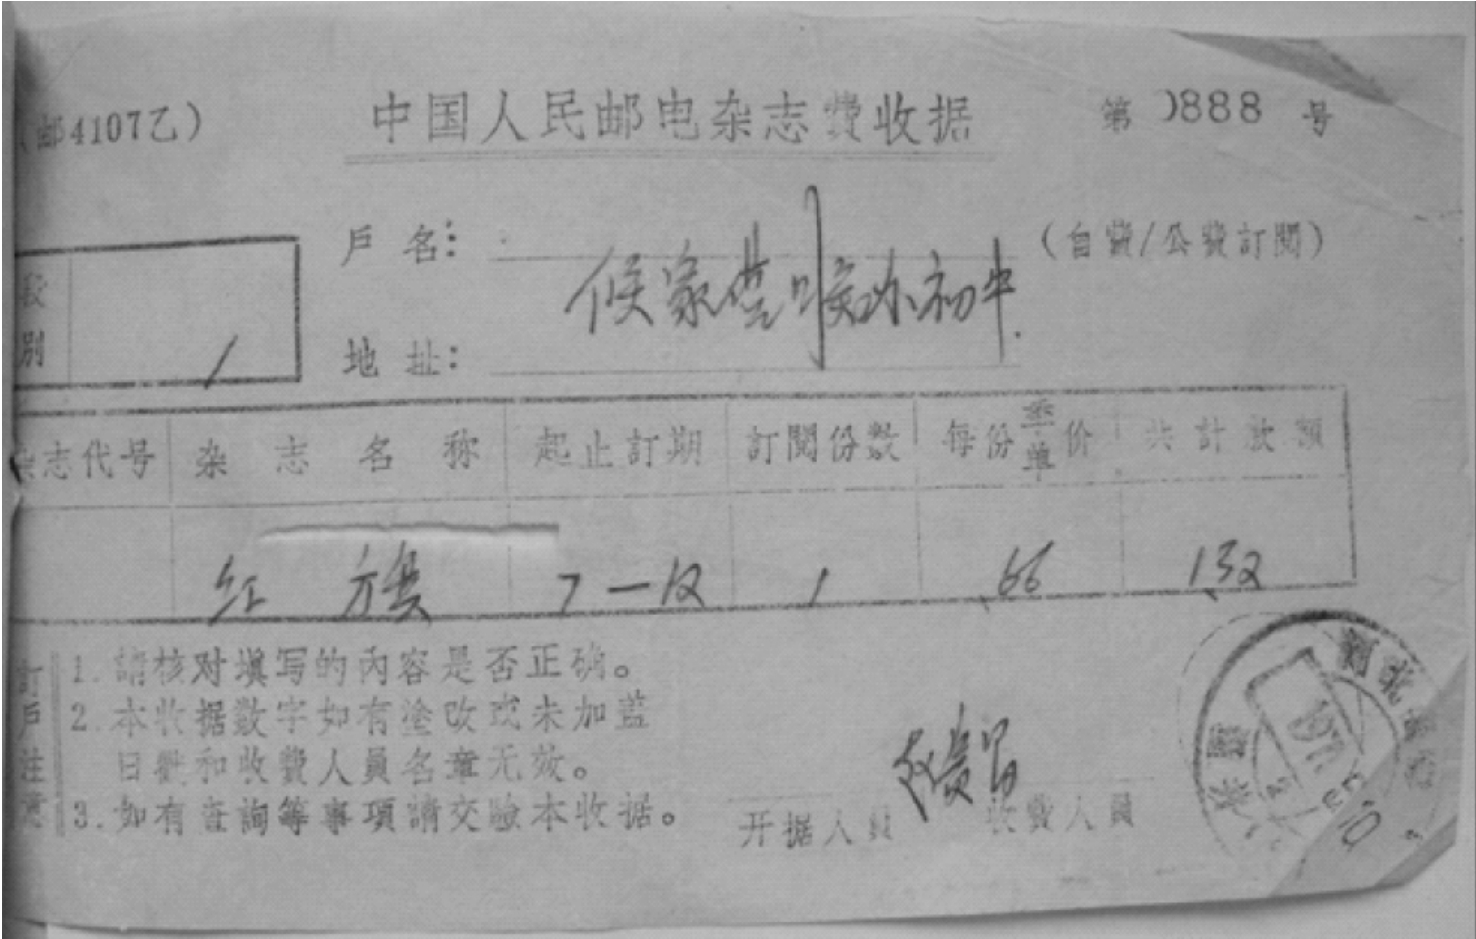 (邮4107乙) 中国人民邮电杂志費收据 第 0888 号
戶名: (自費/公費訂閱)
候家营 初中
地址:
段别
杂志代号 杂志名称 起止訂期 訂閱份数 每份季单价 共計款額
红旗 7—12 1 .66 1.32
訂戶注意
1. 請核对填写的內容是否正确。
2. 本收据数字如有塗改或未加蓋
日戳和收費人員名章无效。
3. 如有查詢等事項請交驗本收据。
开据人員 收費人員